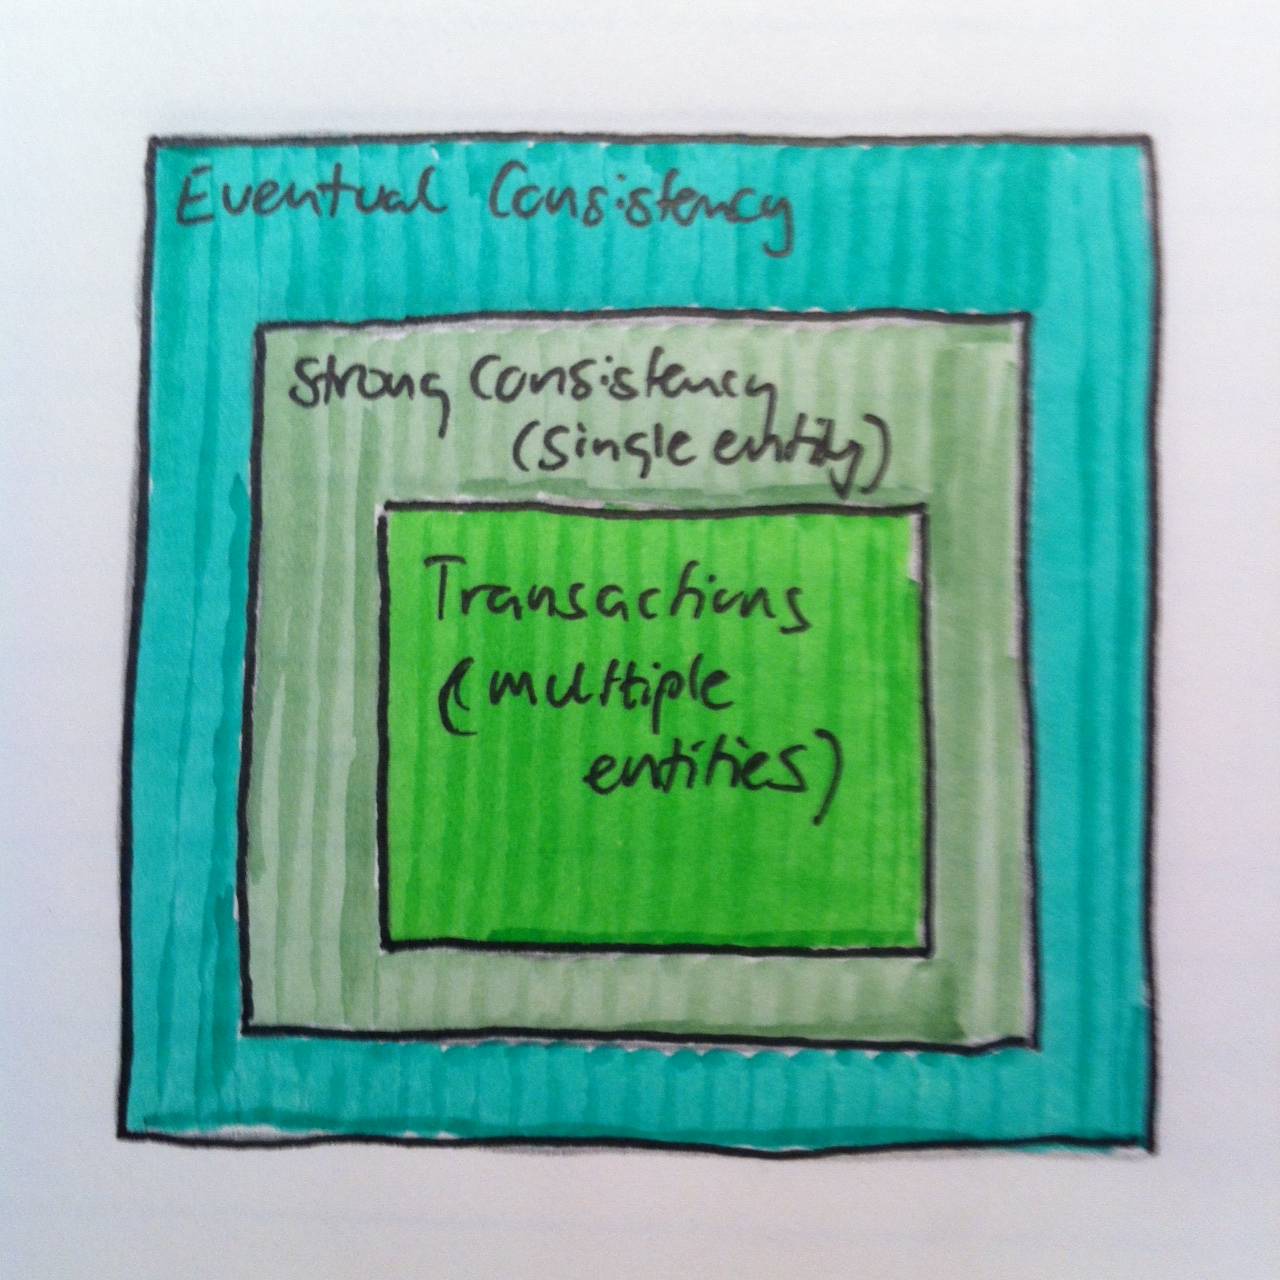 Eventual Consistency
Strong Consistency
(Single entity)
Transactions
(multiple
entities)